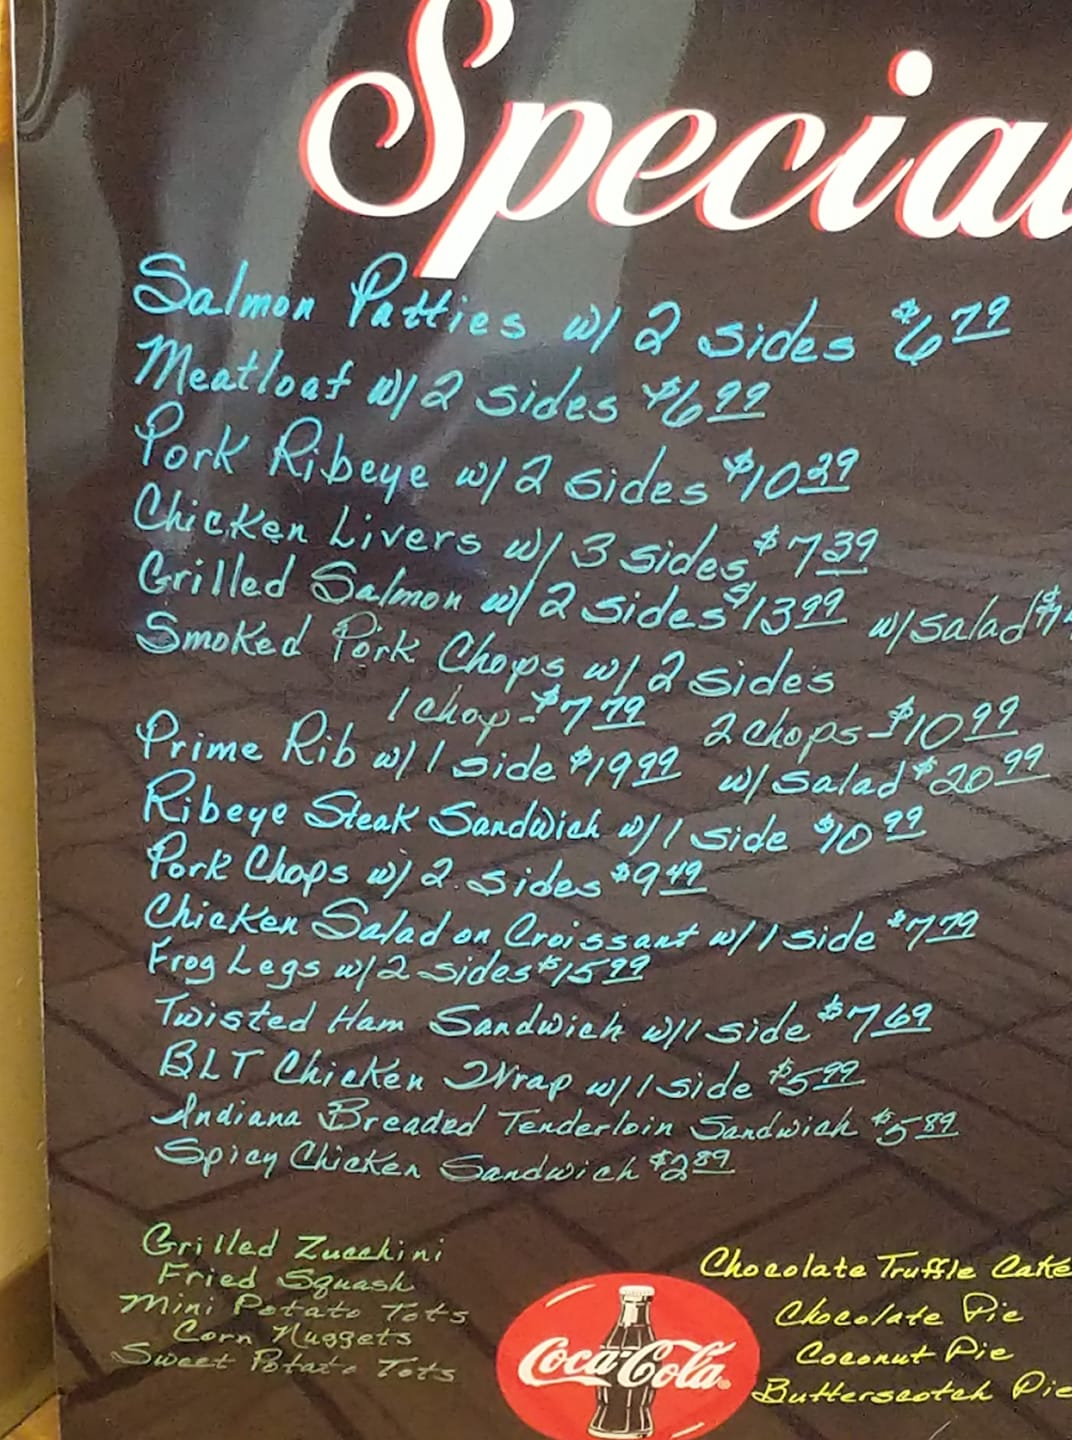 Special
Salmon Patties w/ 2 sides $6.79
Meatloaf w/ 2 sides $6.99
Pork Ribeye w/ 2 sides $10.29
Chicken Livers w/ 3 sides $7.39
Grilled Salmon w/ 2 sides $13.99 w/ salad
Smoked Pork Chops w/ 2 sides
1 chop - $7.79 2 chops - $10.99
Prime Rib w/ 1 side $19.99 w/ Salad $20.99
Ribeye Steak Sandwich w/ 1 side $10.99
Pork Chops w/ 2 sides $9.49
Chicken Salad on Croissant w/ 1 side $7.79
Frog Legs w/ 2 sides $15.99
Twisted Ham Sandwich w/ 1 side $7.69
BLT Chicken Wrap w/ 1 side $5.99
Indiana Breaded Tenderloin Sandwich $5.89
Spicy Chicken Sandwich $2.89
Grilled Zucchini
Fried Squash
Mini Potato Tots
Corn Nuggets
Sweet Potato Tots
Coca-Cola
Chocolate Truffle Cake
Chocolate Pie
Coconut Pie
Butterscotch Pie